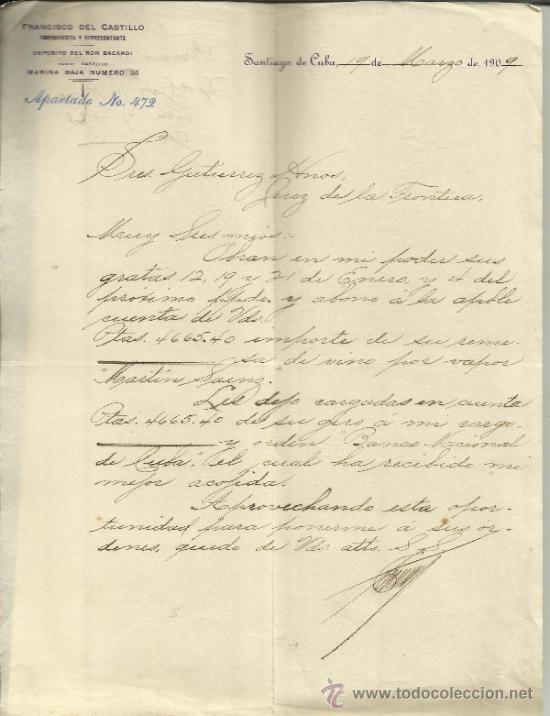 FRANCISCO DEL CASTILLO
COMISIONISTA Y REPRESENTANTE
DEPOSITO DEL RON BACARDI
CASTILLO
MARINA BAJA NUMERO 36
Apartado No. 472
Santiago de Cuba, 19 de Marzo de 1909
Sres. Gutierrez Hnos.
Jerez de la Frontera.
Muy Sres mios:-
Obran en mi poder sus
gratas 12, 19 y 21 de Enero, y 4 del
próximo ppdo. y abono á la apble
cuenta de Vds.
Ptas. 4665.40 importe de su reme-
sa de vino por vapor
"Martin Saenz."
Les dejo cargadas en cuenta
Ptas. 4665.40 de su giro a mi cargo
y orden "Banco Nacional
de Cuba". el cual ha recibido mi
mejor acojida.
Aprovechando esta opor-
tunidad para ponerme á sus or-
denes, quedo de Vds atto. S.S.
© http://www.todocoleccion.net